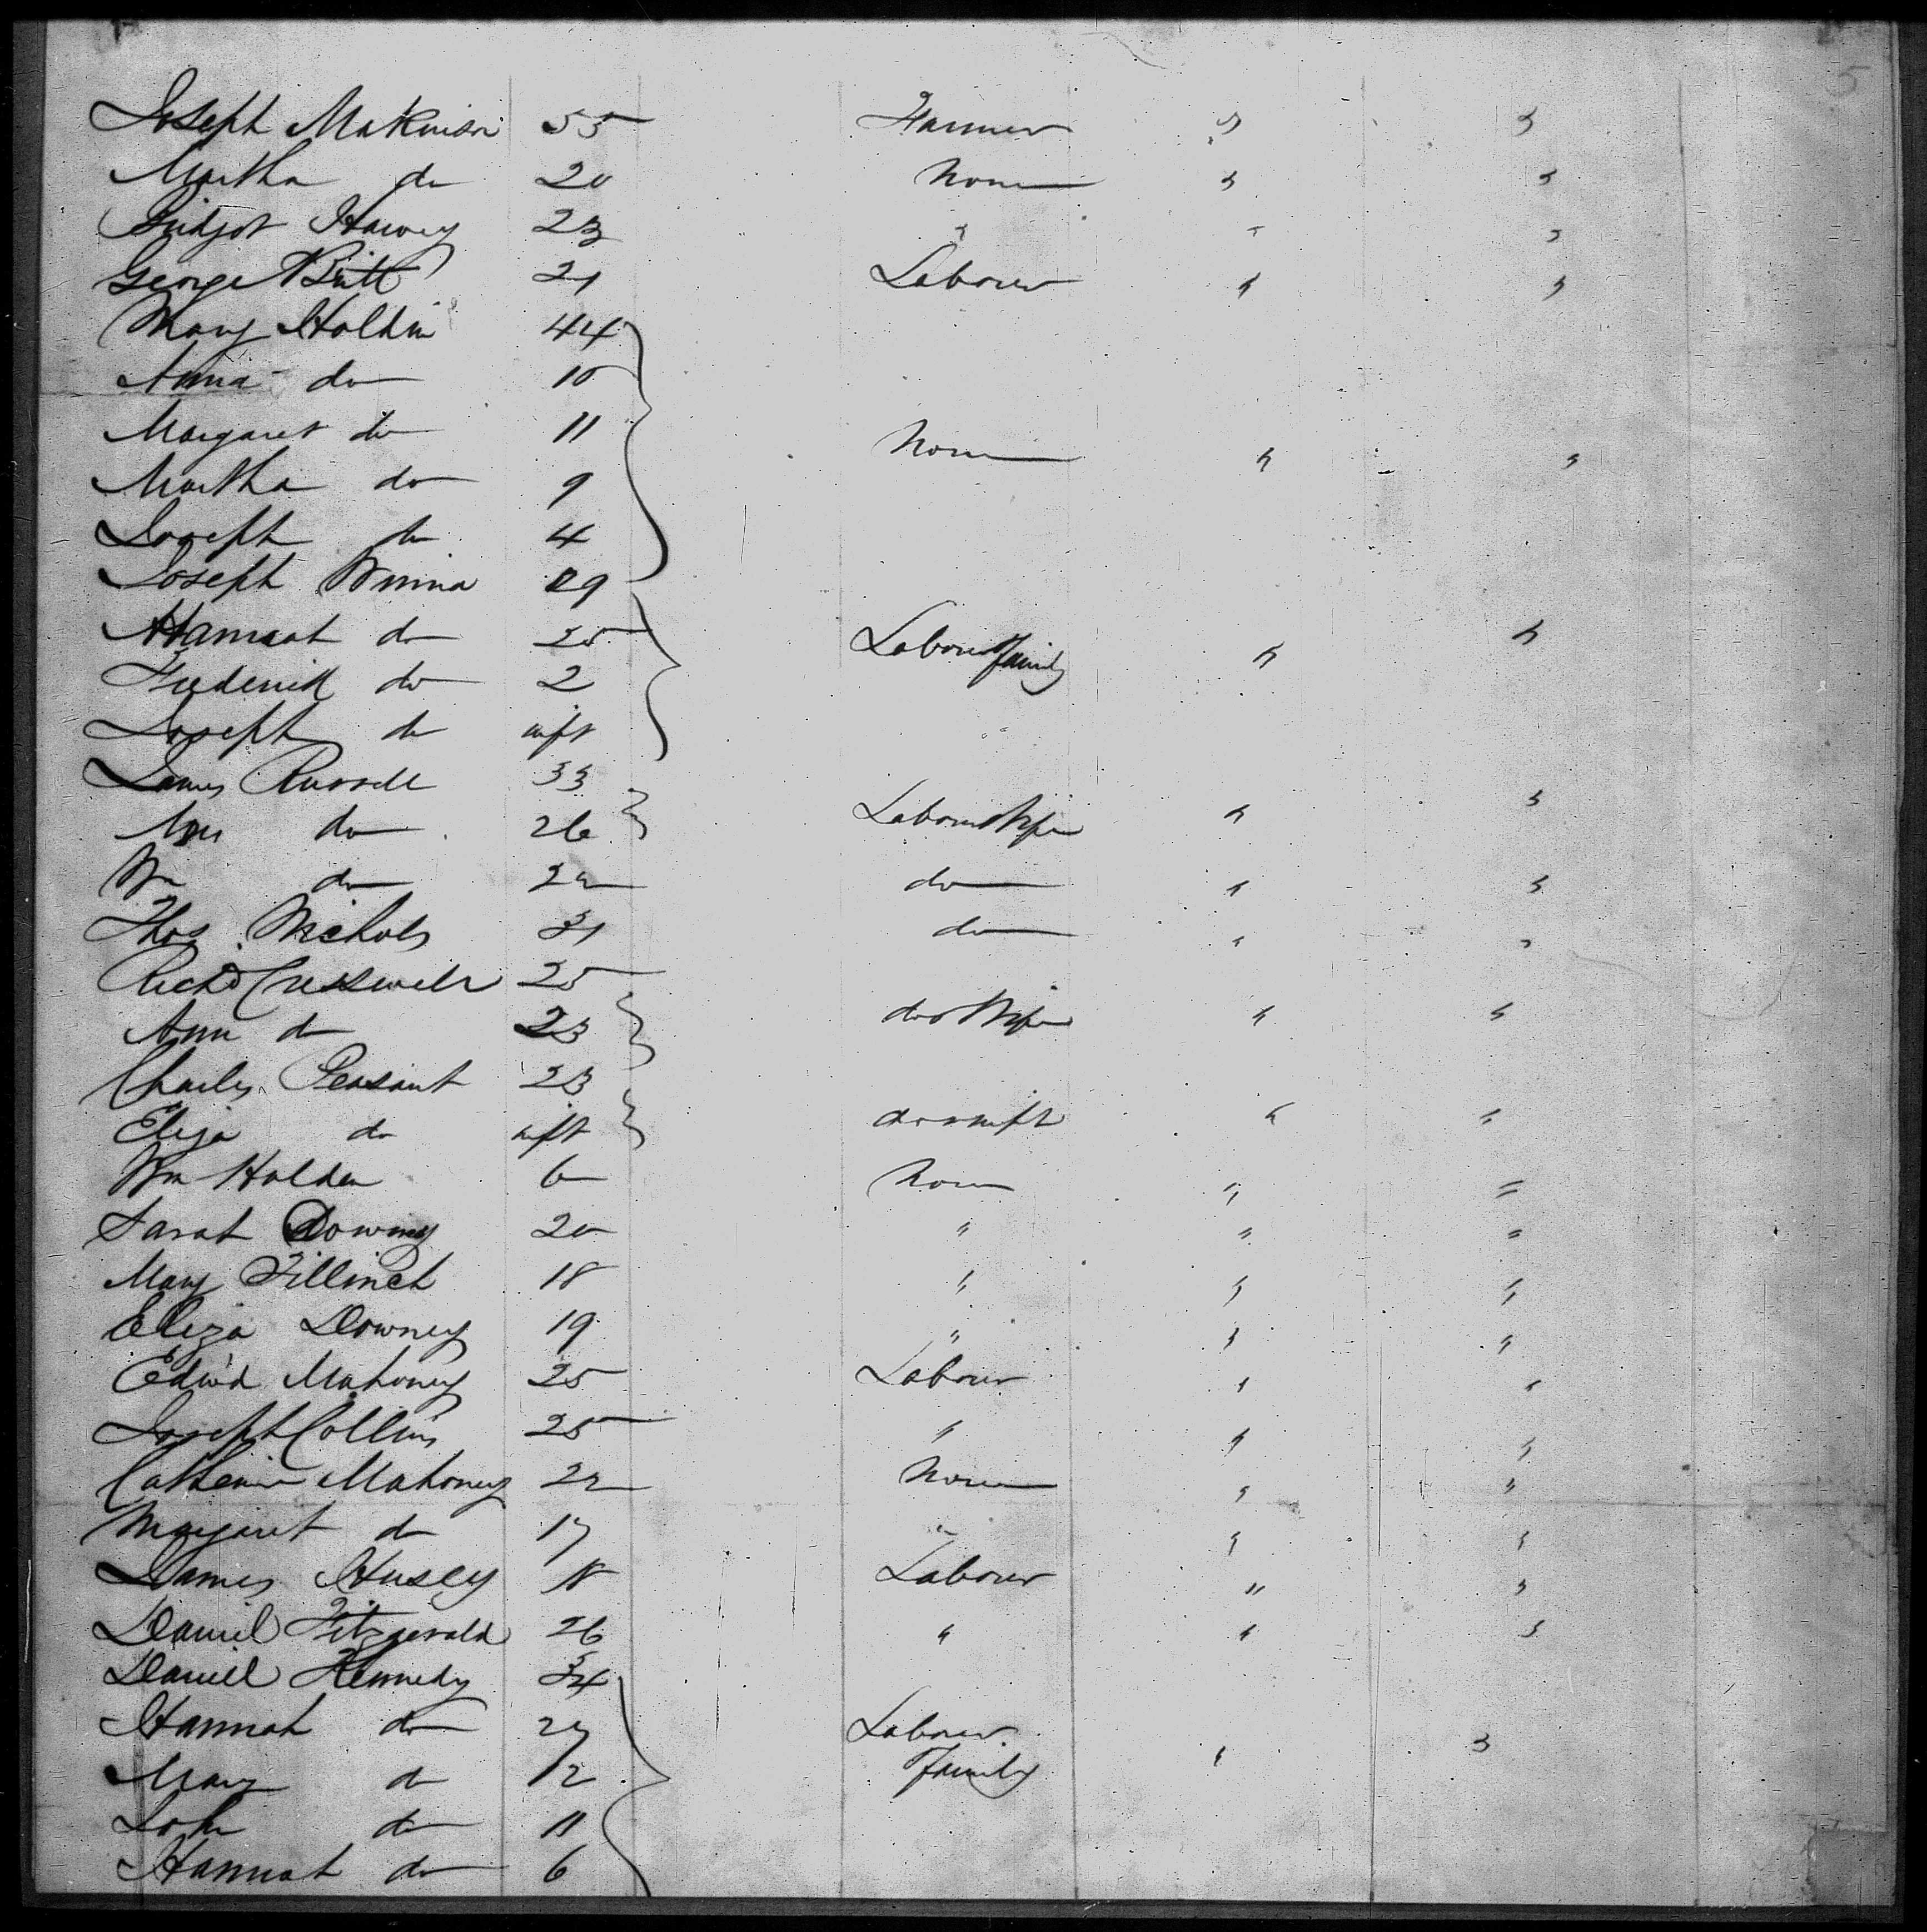 5
Joseph Makinson 55 Farmer " "
Martha do 20 None " "
Bridget Harvey 23 " " "
George Butt 21 Labourer " "
Mary Holden 44
Anna do 10
Margaret do 11 None " "
Martha do 9
Joseph do 4
Joseph 29
Hannah do 25 Labourer & family " "
Frederick do 2
Joseph do inft
James Russell 33
Ann do 26 Labourer & Wife " "
Wm do 22 do " "
Thos. Nichols 31 do " "
Richd Cresswell 25
Ann do 23 do & Wife " "
Charles Peasant 23
Eliza do inft do & inft " "
Wm Holden 6 None " "
Sarah Downey 20 " " "
Mary 18 " " "
Eliza Downey 19 " " "
Edwd Mahoney 25 Labourer " "
Joseph Collins 25 " " "
Catherine Mahoney 22 None " "
Margaret do 17 " " "
James Husey 18 Labourer " "
Daniel Fitzgerald 26 " " "
Daniel Kennedy 34
Hannah do 27 Labourer
Mary do 12 Family " "
John do 11
Hannah do 6